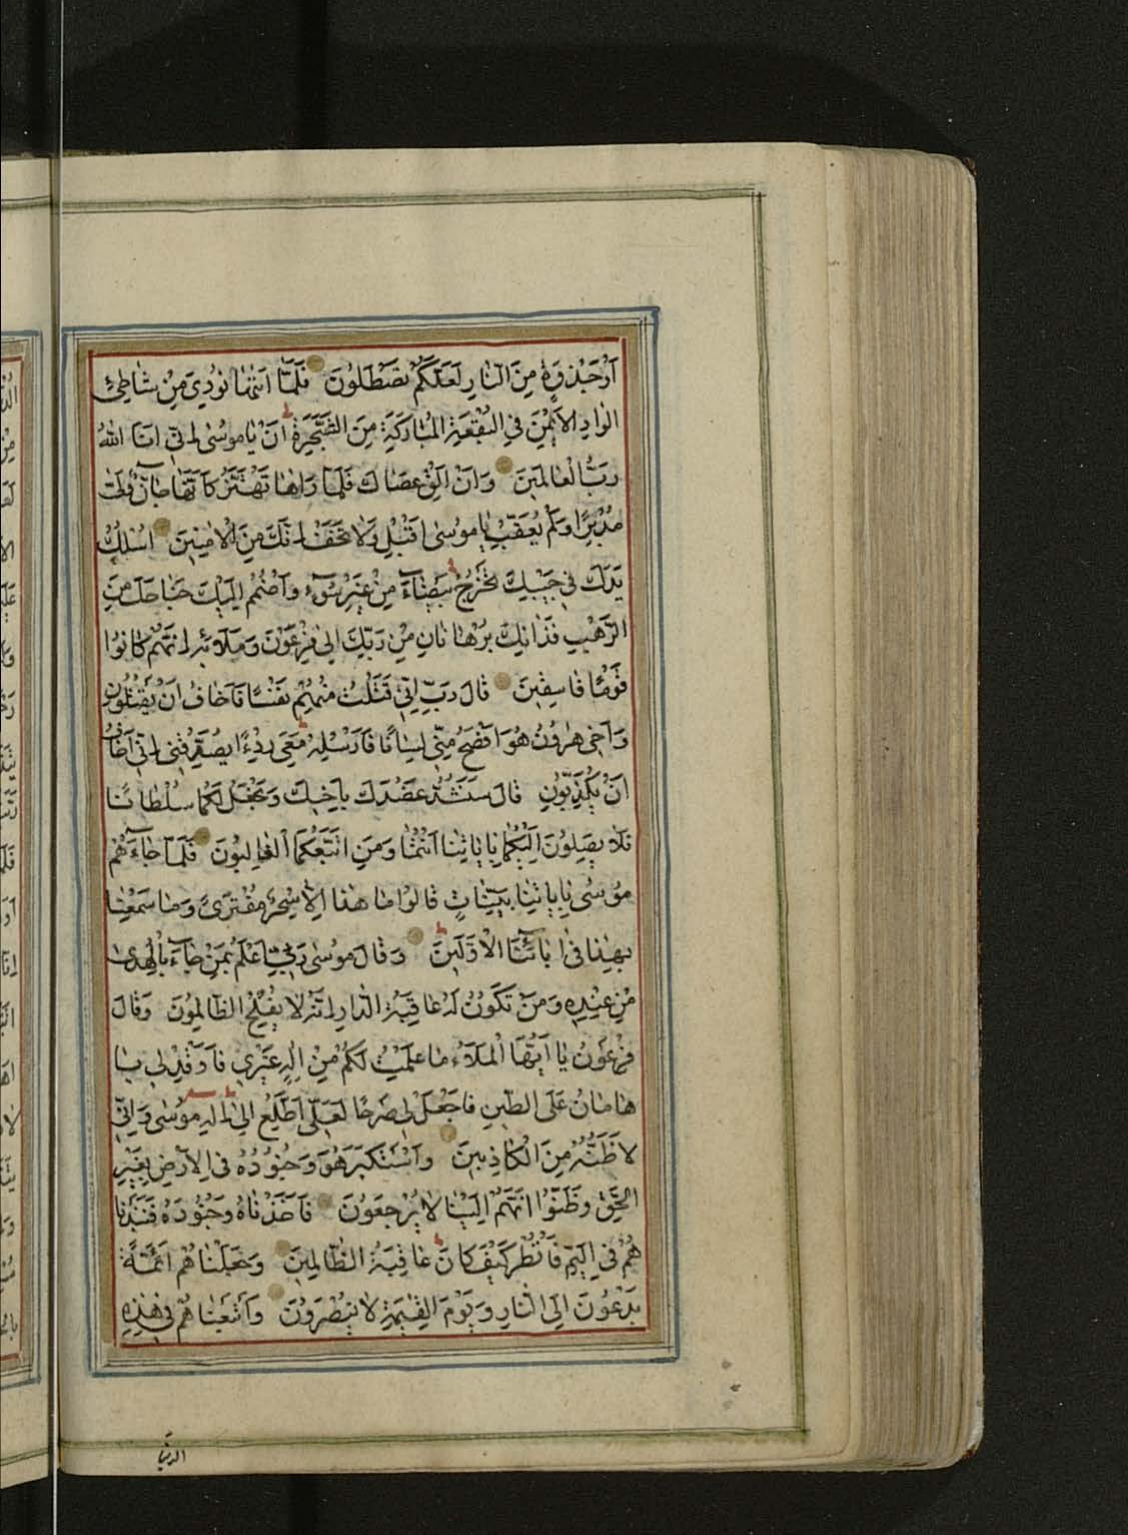 أَوْ جَذْوَةٍ مِنَ النَّارِ لَعَلَّكُمْ تَصْطَلُونَ فَلَمَّا اَتٰيهَا نُودِيَ مِنْ شَاطِئِ
الْوَادِ الْاَيْمَنِ فِي الْبُقْعَةِ الْمُبَارَكَةِ مِنَ الشَّجَرَةِ اَنْ يَا مُوسٰى اِنّٖي اَنَا اللّٰهُ
رَبُّ الْعَالَمٖينَ وَاَنْ اَلْقِ عَصَاكَ فَلَمَّا رَاٰهَا تَهْتَزُّ كَاَنَّهَا جَانٌّ وَلّٰى
مُدْبِرًا وَلَمْ يُعَقِّبْ يَا مُوسٰى اَقْبِلْ وَلَا تَخَفْ اِنَّكَ مِنَ الْاٰمِنٖينَ اُسْلُكْ
يَدَكَ فٖي جَيْبِكَ تَخْرُجْ بَيْضَاءَ مِنْ غَيْرِ سُوءٍ وَاضْمُمْ اِلَيْكَ جَنَاحَكَ مِنَ
الرَّهْبِ فَذَانِكَ بُرْهَانَانِ مِنْ رَبِّكَ اِلٰى فِرْعَوْنَ وَمَلَائِهٖ اِنَّهُمْ كَانُوا
قَوْمًا فَاسِقٖينَ قَالَ رَبِّ اِنّٖي قَتَلْتُ مِنْهُمْ نَفْسًا فَاَخَافُ اَنْ يَقْتُلُونِ
وَاَخٖي هٰرُونُ هُوَ اَفْصَحُ مِنّٖي لِسَانًا فَاَرْسِلْهُ مَعِيَ رِدْءًا يُصَدِّقُنٖي اِنّٖي اَخَافُ
اَنْ يُكَذِّبُونِ قَالَ سَنَشُدُّ عَضُدَكَ بِاَخٖيكَ وَنَجْعَلُ لَكُمَا سُلْطَانًا
فَلَا يَصِلُونَ اِلَيْكُمَا بِاٰيَاتِنَا اَنْتُمَا وَمَنِ اتَّبَعَكُمَا الْغَالِبُونَ فَلَمَّا جَاءَهُمْ
مُوسٰى بِاٰيَاتِنَا بَيِّنَاتٍ قَالُوا مَا هٰذَا اِلَّا سِحْرٌ مُفْتَرًى وَمَا سَمِعْنَا
بِهٰذَا فٖي اٰبَائِنَا الْاَوَّلٖينَ وَقَالَ مُوسٰى رَبّٖي اَعْلَمُ بِمَنْ جَاءَ بِالْهُدٰى
مِنْ عِنْدِهٖ وَمَنْ تَكُونُ لَهُ عَاقِبَةُ الدَّارِ اِنَّهُ لَا يُفْلِحُ الظَّالِمُونَ وَقَالَ
فِرْعَوْنُ يَا اَيُّهَا الْمَلَاُ مَا عَلِمْتُ لَكُمْ مِنْ اِلٰهٍ غَيْرٖي فَاَوْقِدْ لٖي يَا
هَامَانُ عَلَى الطّٖينِ فَاجْعَلْ لٖي صَرْحًا لَعَلّٖي اَطَّلِعُ اِلٰى اِلٰهِ مُوسٰى وَاِنّٖي
لَاَظُنُّهُ مِنَ الْكَاذِبٖينَ وَاسْتَكْبَرَ هُوَ وَجُنُودُهُ فِي الْاَرْضِ بِغَيْرِ
الْحَقِّ وَظَنُّوا اَنَّهُمْ اِلَيْنَا لَا يُرْجَعُونَ فَاَخَذْنَاهُ وَجُنُودَهُ فَنَبَذْنَا
هُمْ فِي الْيَمِّ فَانْظُرْ كَيْفَ كَانَ عَاقِبَةُ الظَّالِمٖينَ وَجَعَلْنَاهُمْ اَئِمَّةً
يَدْعُونَ اِلَى النَّارِ وَيَوْمَ الْقِيٰمَةِ لَا يُنْصَرُونَ وَاَتْبَعْنَاهُمْ فٖي هٰذِهِ
الدنيا